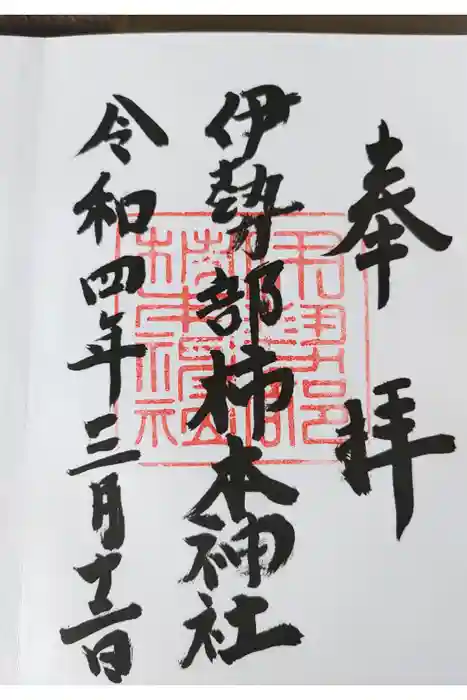 奉拝
伊勢部柿本神社
令和四年三月十二日